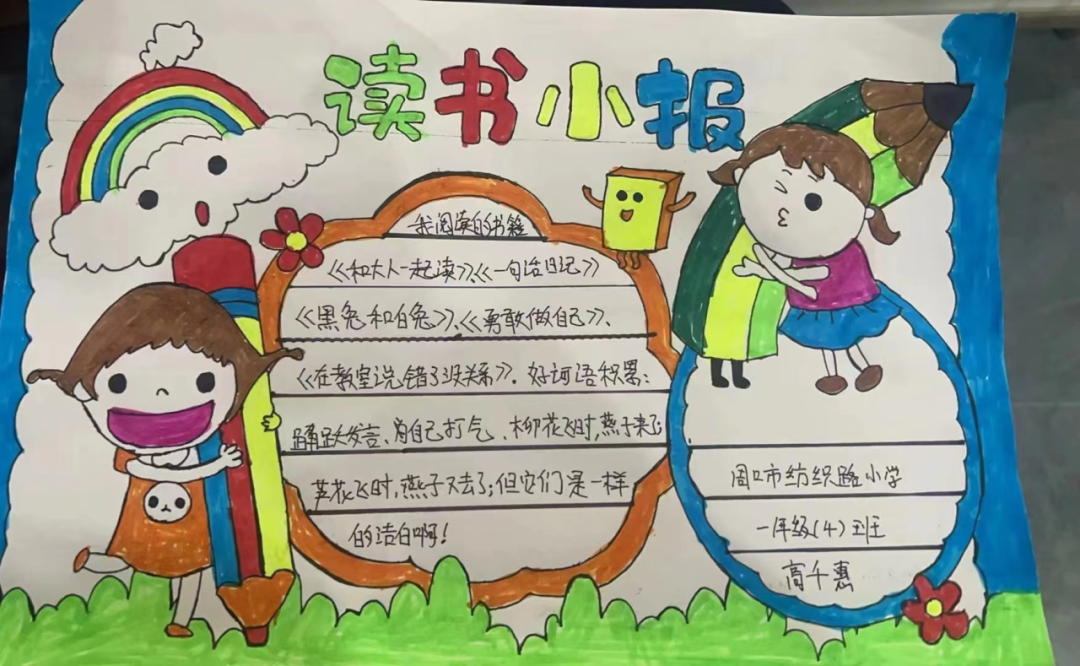 读书小报
我阅读的书籍
《和大人一起读》、《一句话日记》
《黑兔和白兔》、《勇敢做自己》、
《在教室说错了没关系》. 好词语积累:
踊跃发言、为自己打气、柳花飞时,燕子来了;
芦花飞时,燕子又去了;但它们是一样
的洁白啊!
周口市纺织路小学
一年级(4)班
高千惠